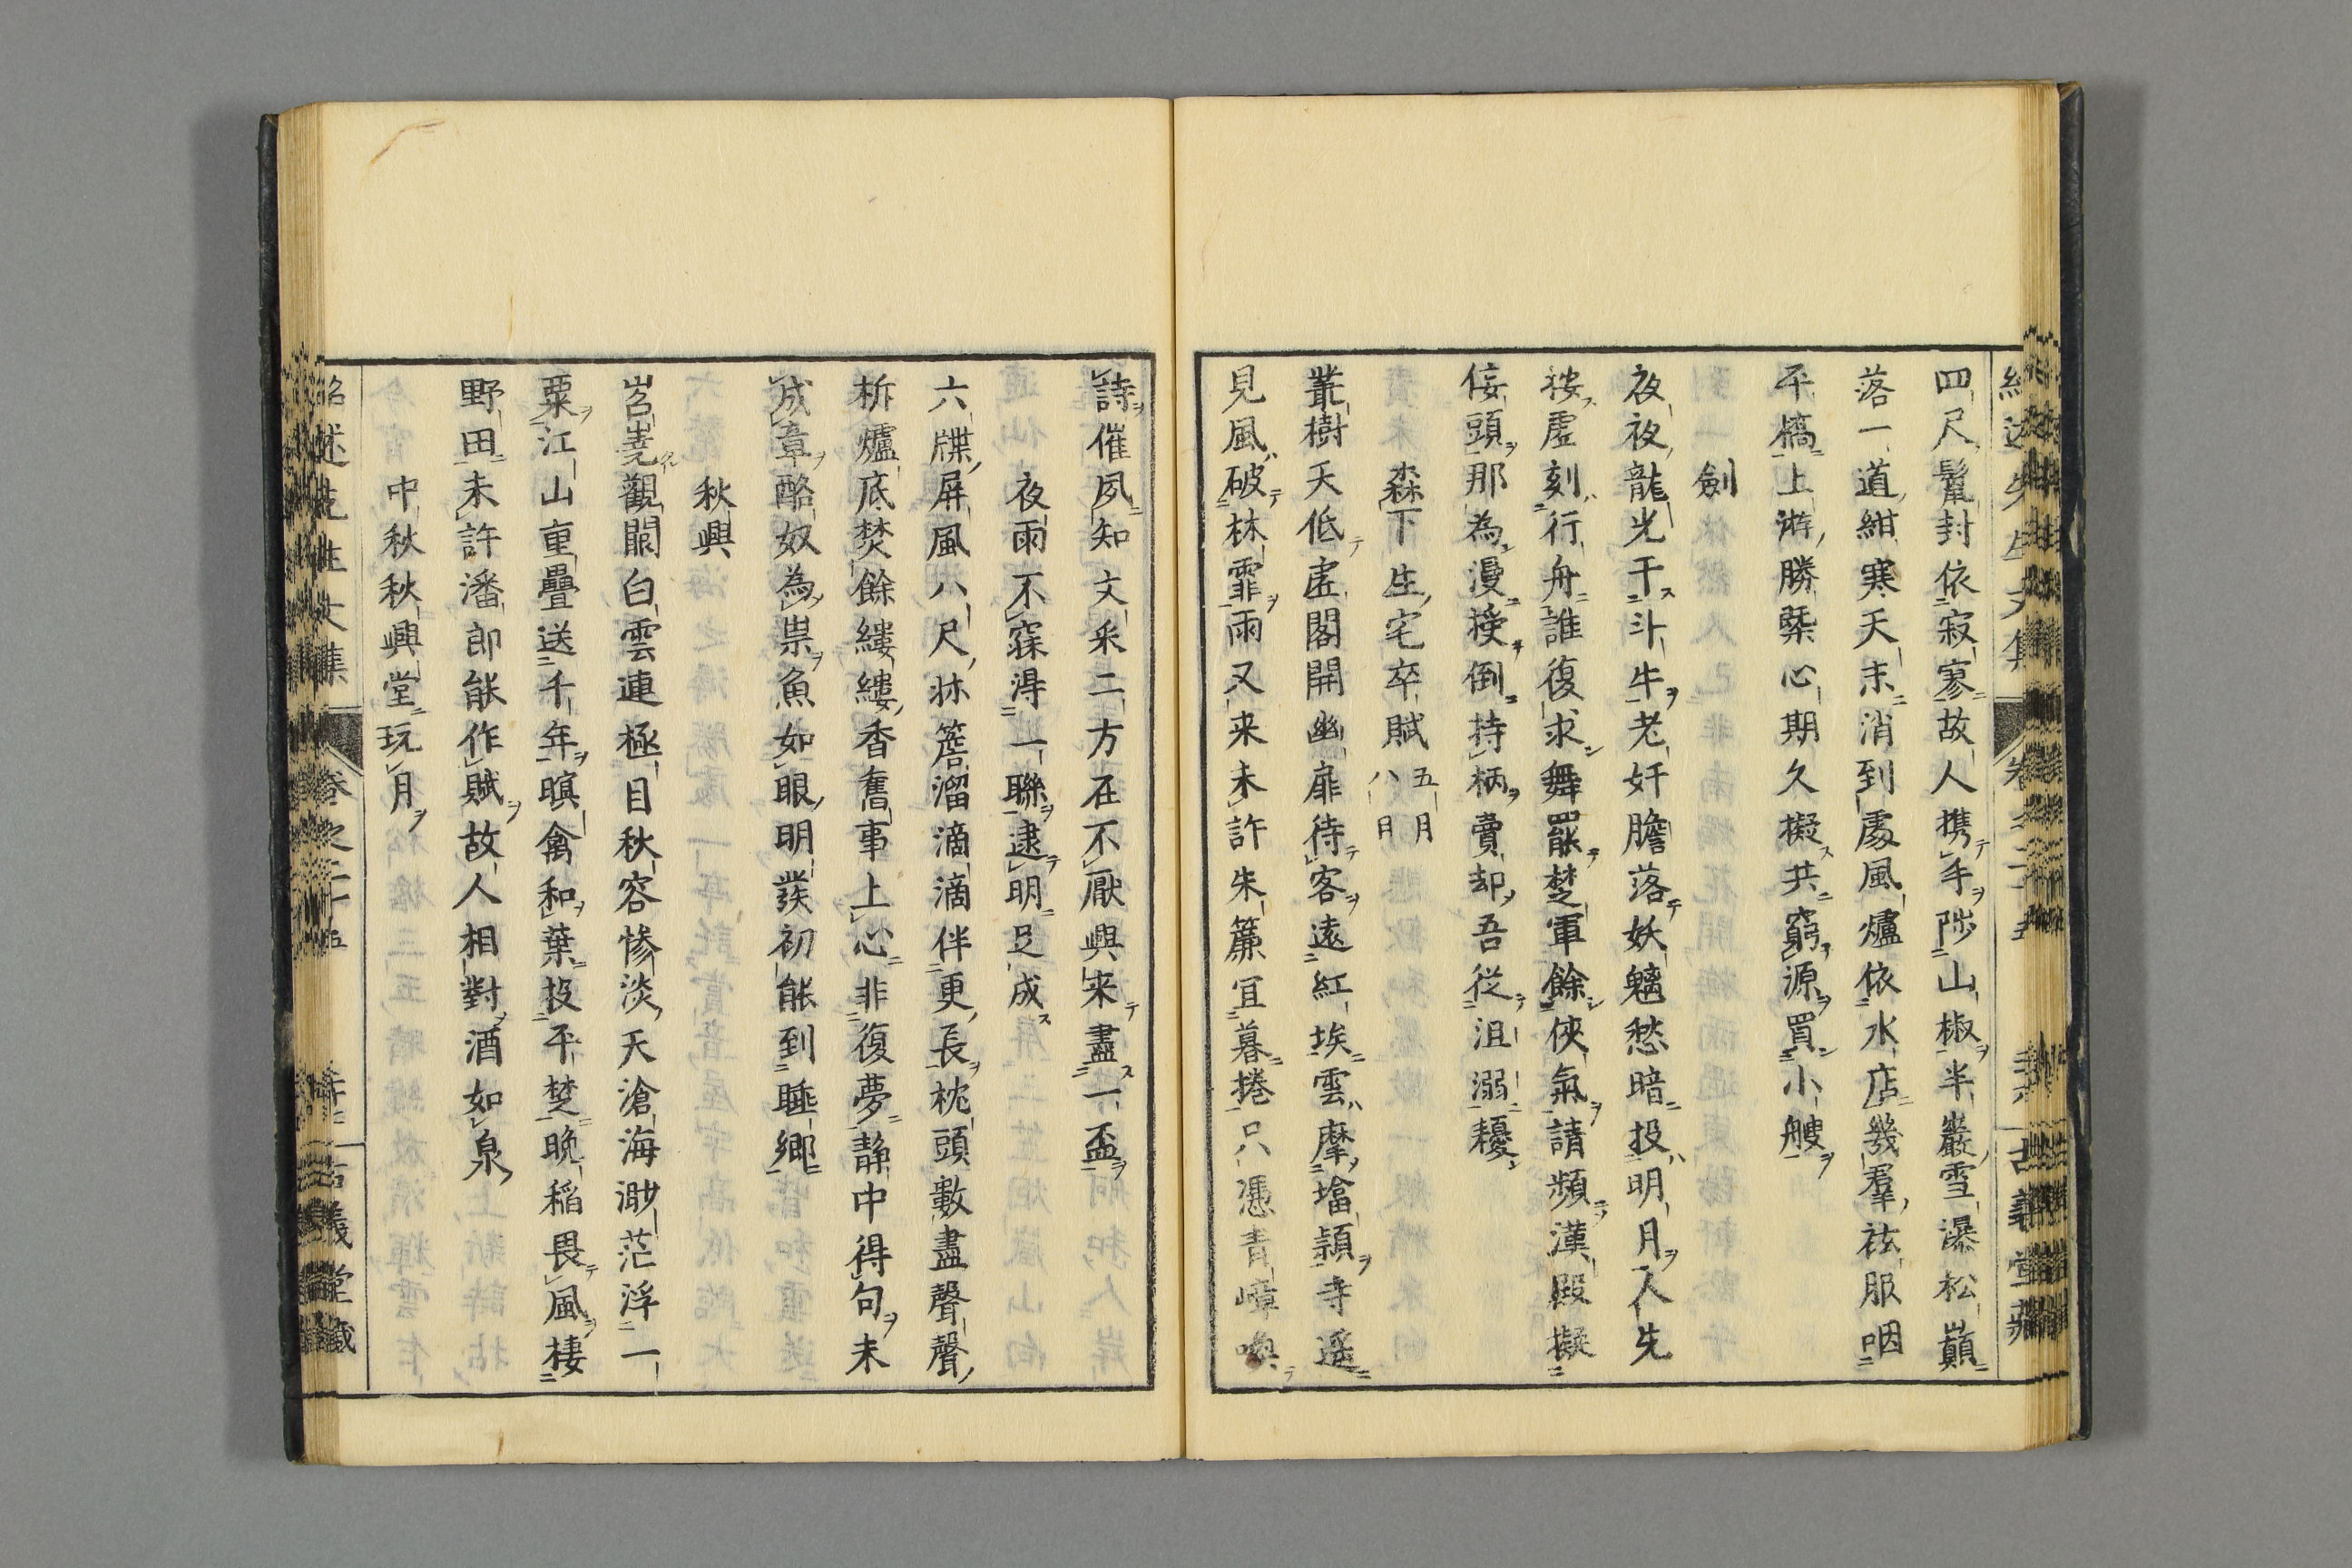 四尺鬟封依寂寥故人携手陟山椒半巖雪瀑松巔
落一道紺寒天末消到處風爐依水店幾羣袨服咽
平橋上游勝槩心期久擬共窮源買小艘
劍
夜夜龍光干斗牛老奸膽落妖魑愁暗投明月人先
按虛刻行舟誰復求舞罷楚軍餘俠氣請頻漢殿擬
侫頭那為漫授倒持柄賣却吾従沮溺耰
森下生宅卒賦 五月八日
叢樹天低虛閣開幽扉待客遠紅埃雲摩墖頴寺遥
見風破林霏雨又来未許朱簾宜暮捲只憑青嶂喚
詩催夙知文采二方在不厭興来盡一盃
夜雨不寐得一聯逮明足成
六牒屏風八尺牀簷溜滴滴伴更長枕頭數盡聲聲
柝爐底焚餘縷縷香舊事上心非復夢靜中得句未
成章酪奴為祟魚如眼明發初能到睡鄉
秋興
岧嶤觀闕白雲連極目秋容惨淡天滄海渺茫浮一
粟江山重疊送千年暝禽和葉投平楚晚稲畏風棲
野田未許潘郎能作賦故人相對酒如泉
中秋秋興堂玩月
紹述先生文集 卷之二十五 古義堂藏